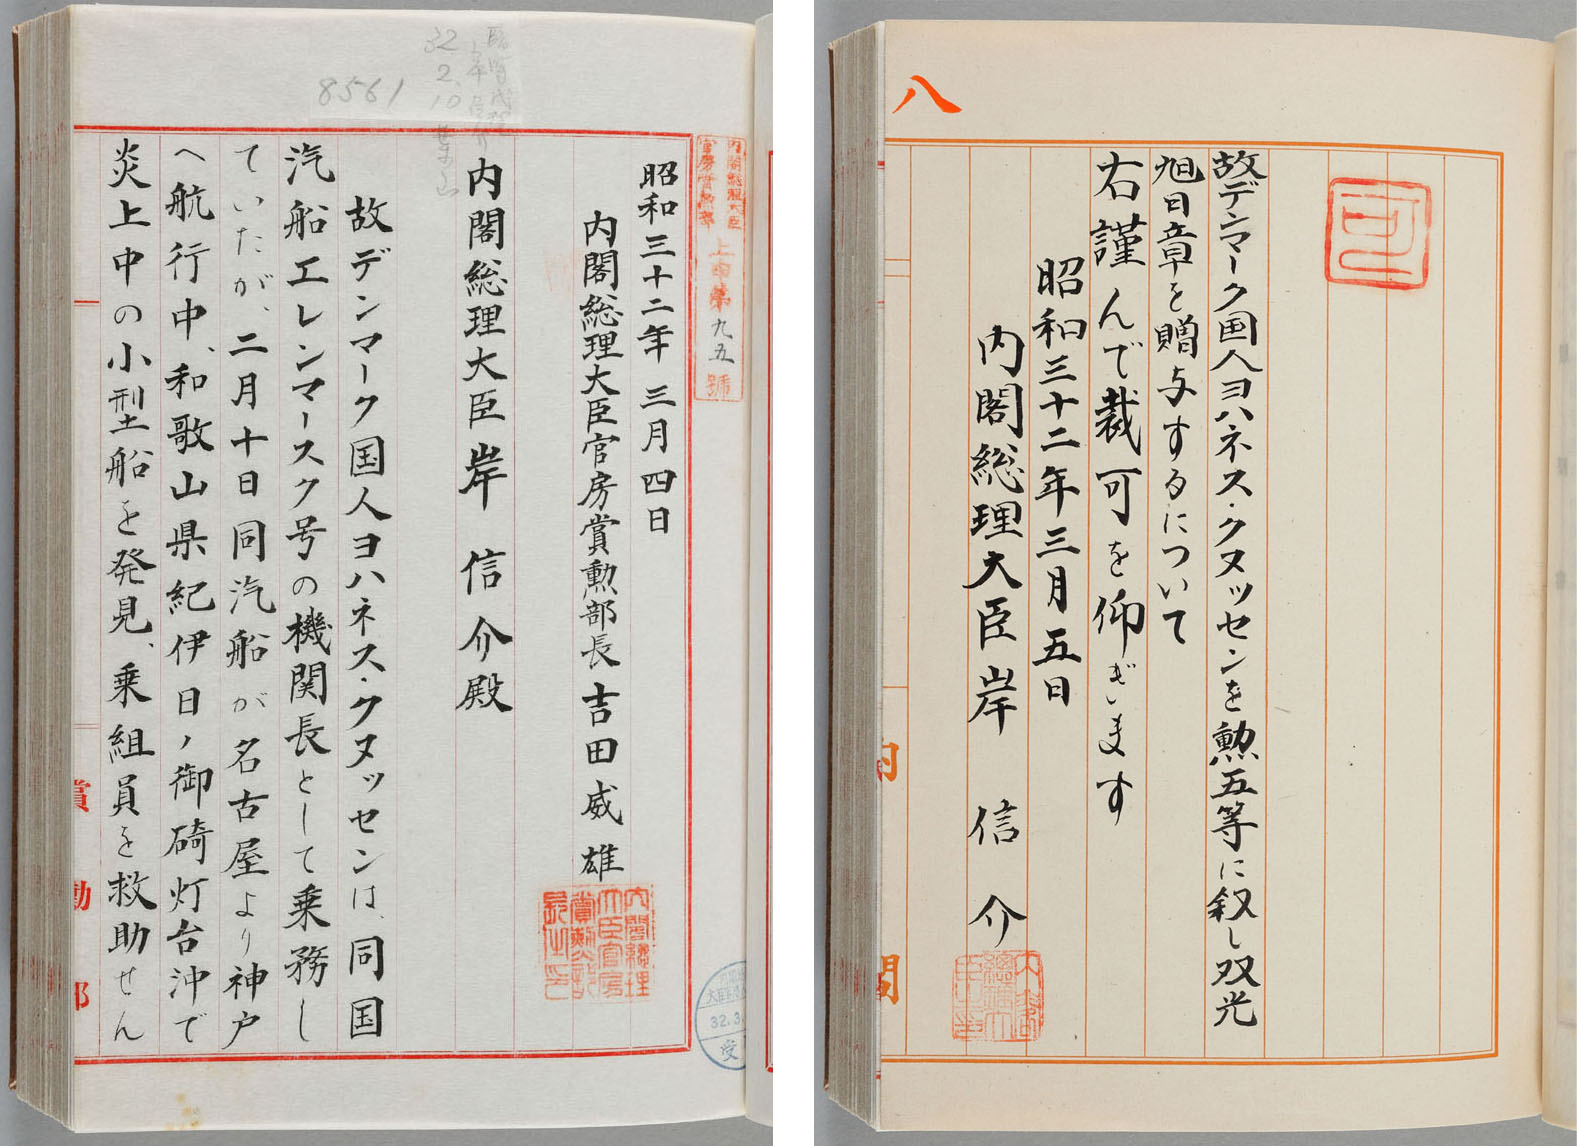 8561
32.2.10
内閣総理大臣官房賞勲部
上申第九五號
昭和三十二年三月四日
内閣総理大臣官房賞勲部長吉田威雄
内閣総理大臣岸信介殿
故デンマーク国人ヨハネス・クヌッセンは、同国
汽船エレンマースク号の機関長として乗務し
ていたが、二月十日同汽船が名古屋より神戸
へ航行中、和歌山県紀伊日ノ御碕灯台沖で
炎上中の小型船を発見、乗組員を救助せん
賞勲部
32.3.
受
八
可
故デンマーク国人ヨハネス・クヌッセンを勲五等に叙し双光
旭日章を贈与するについて
右謹んで裁可を仰ぎます
昭和三十二年三月五日
内閣総理大臣岸信介
内閣